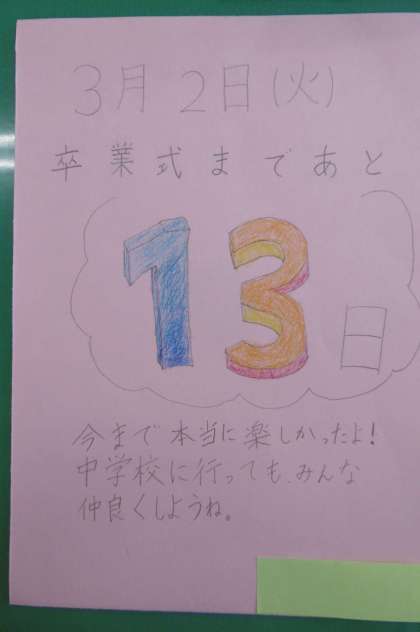 3月2日(火)
卒業式まであと
13日
今まで本当に楽しかったよ!
中学校に行っても、みんな
仲良くしようね。